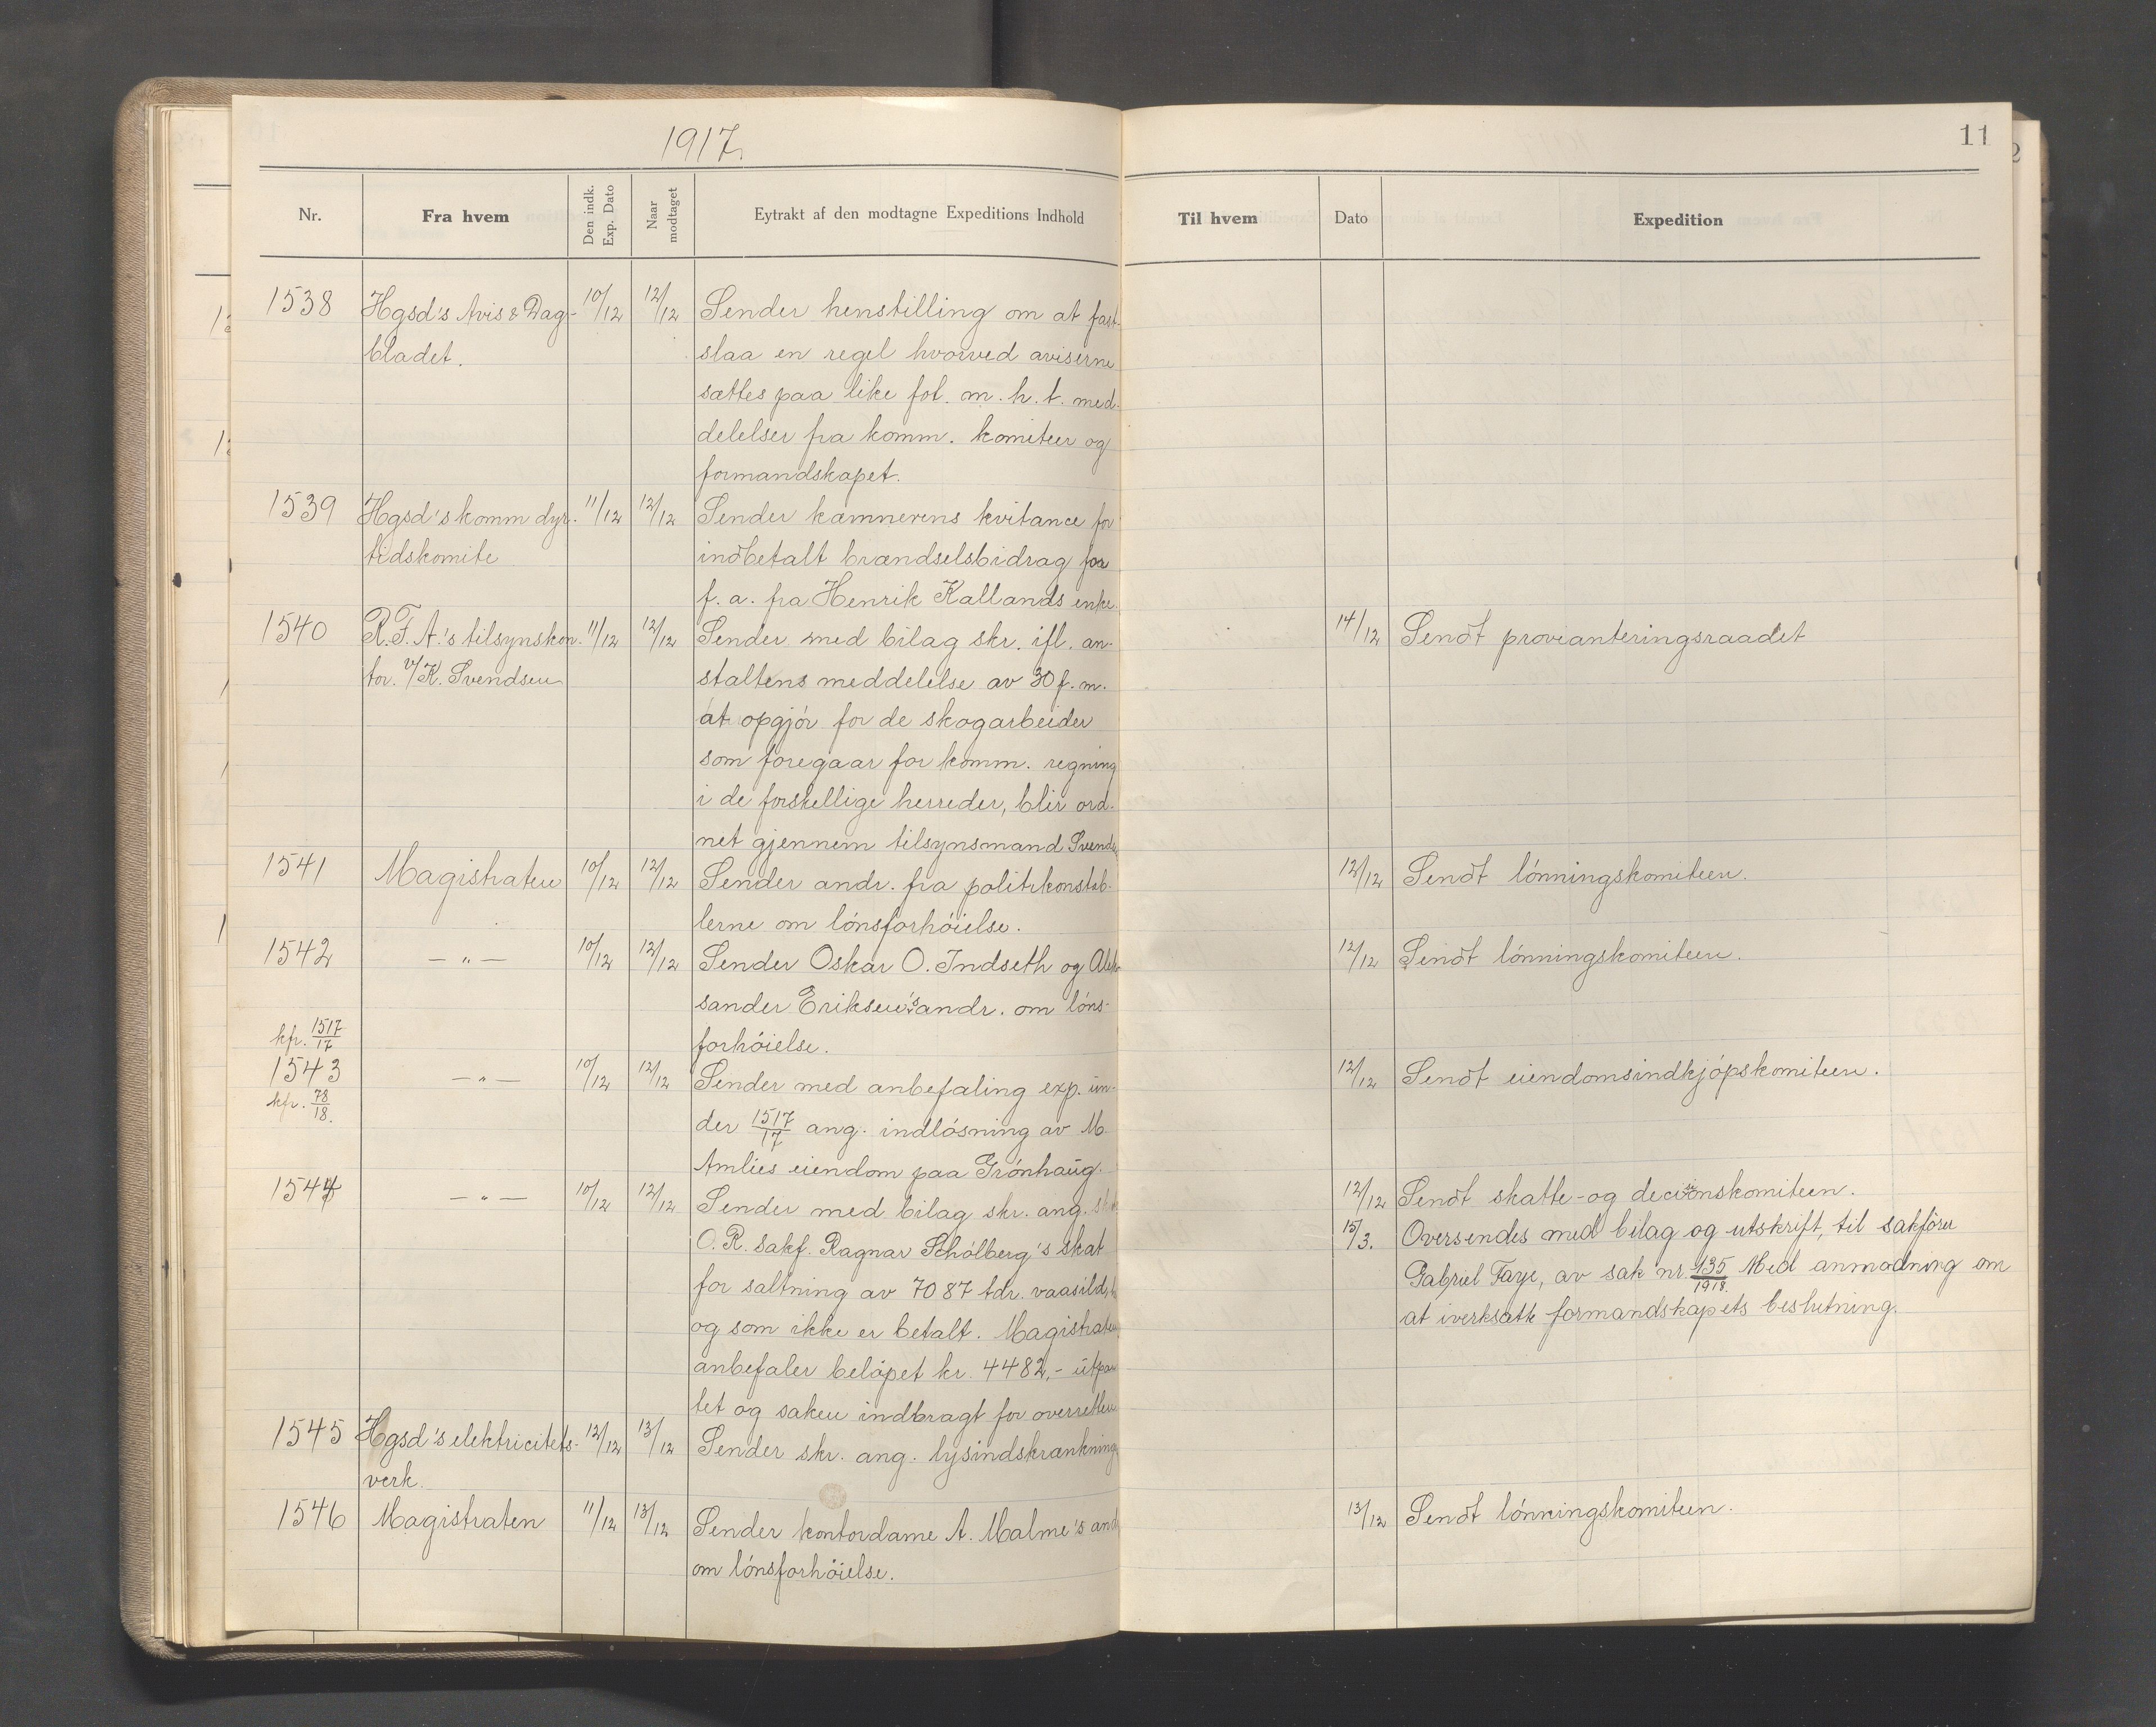 1917.
11
Nr.
Fra hvem
Den indk. Exp. Dato
Naar modtaget
Eytrakt af den modtagne Expeditions Indhold
Til hvem
Dato
Expedition
1538 Hgsd's Avis & Dag- 10/12 12/12 Sender henstilling om at fast-
bladet. slaa en regel hvorved aviserne
sættes paa like fot. m. h. t. med-
delelser fra komm. komiteer og
formandskapet.
1539 Hgsd's komm dyr- 11/12 12/12 Sender kæmnerens kvitance for
tidskomite indbetalt brændselsbidrag for
f. a. fra Henrik Kallands enke.
1540 R. F. A.'s tilsynskon- 11/12 12/12 Sender med bilag skr. ifl. an- 14/12 Sendt provianteringsraadet
tor. v/K. Svendsen staltens meddelelse av 30 f. m.
at opgjör for de skogarbeider
som foregaar for komm. regning
i de forskellige herreder, blir ord-
net gjennem tilsynsmand
1541 Magistraten 10/12 12/12 Sender andr. fra politikonstab- 12/12 Sendt lönningskomiteen.
lerne om lönsforhöielse.
1542 — " — 10/12 12/12 Sender Oskar O. Indseth og Alek- 12/12 Sendt lönningskomiteen.
sander Eriksen's andr. om löns-
kfr. 1517/17 forhöielse.
1543 — " — 10/12 12/12 Sender med anbefaling exp. un- 12/12 Sendt eiendomsindkjöpskomiteen.
kfr. 78/18. der 1517/17 ang. indlösning av M.
Amlies eiendom paa Grönhaug.
1544 — " — 10/12 12/12 Sender med bilag skr. ang. 12/12 Sendt skatte- og decisionskomiteen.
O. R. sakf. Ragnar Schölberg's skat 15/3. Oversendes med bilag og utskrift, til sakförer
for saltning av 7087 tdr. vaarsild, Gabriel Faye, av sak nr. 135/1918. Med anmodning om
og som ikke er betalt. Magistraten at iverksætte formandskapets beslutning.
anbefaler belöpet kr. 4482,- utpan-
tet og saken indbragt for overretten
1545 Hgsd's elektricitets- 12/12 13/12 Sender skr. ang. lysindskrænkning
verk.
1546 Magistraten 11/12 13/12 Sender kontordame A. Malme's andr. 13/12 Sendt lönningskomiteen.
om lönsforhöielse.